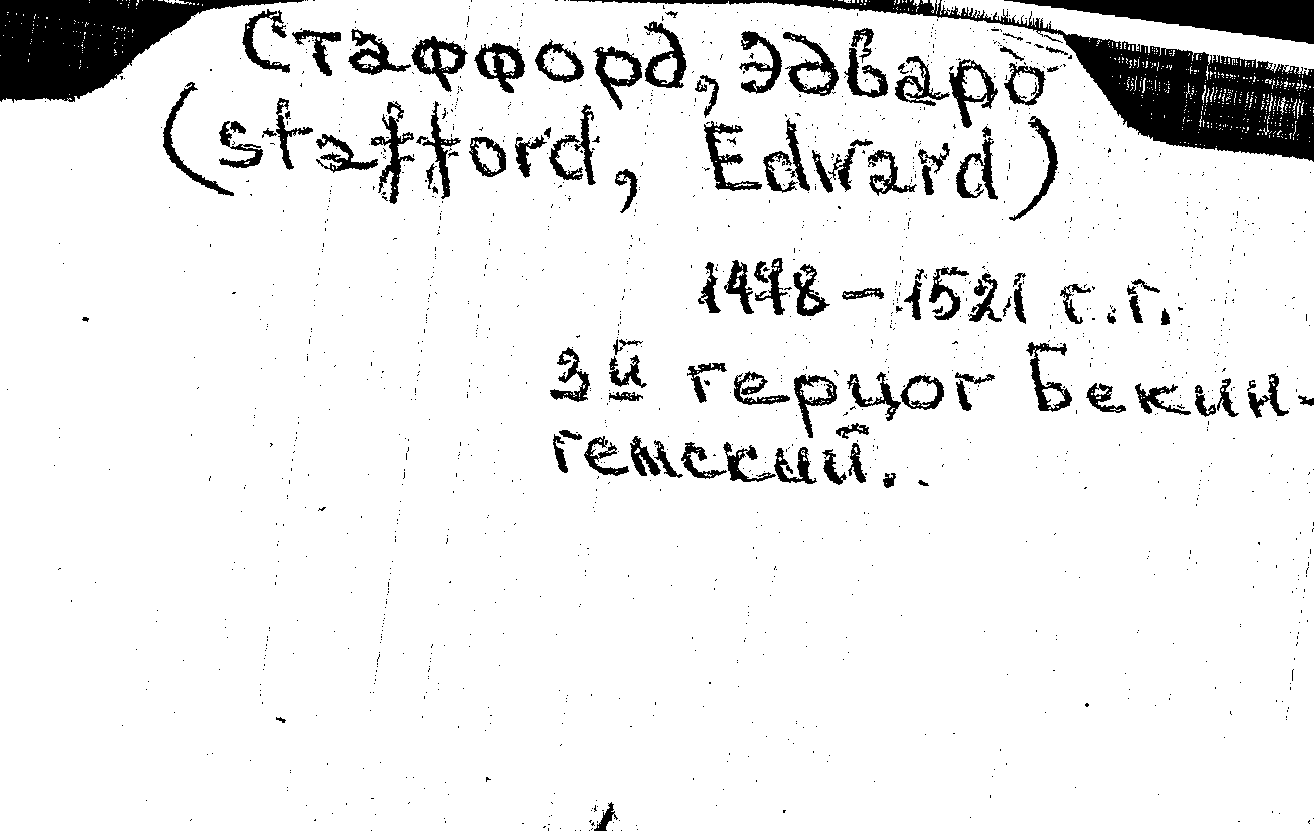 Стаффорд, Эдвард
(Stafford, Edward)
1478 – 1521 г.г.
3й герцог Бекин-
гемский.